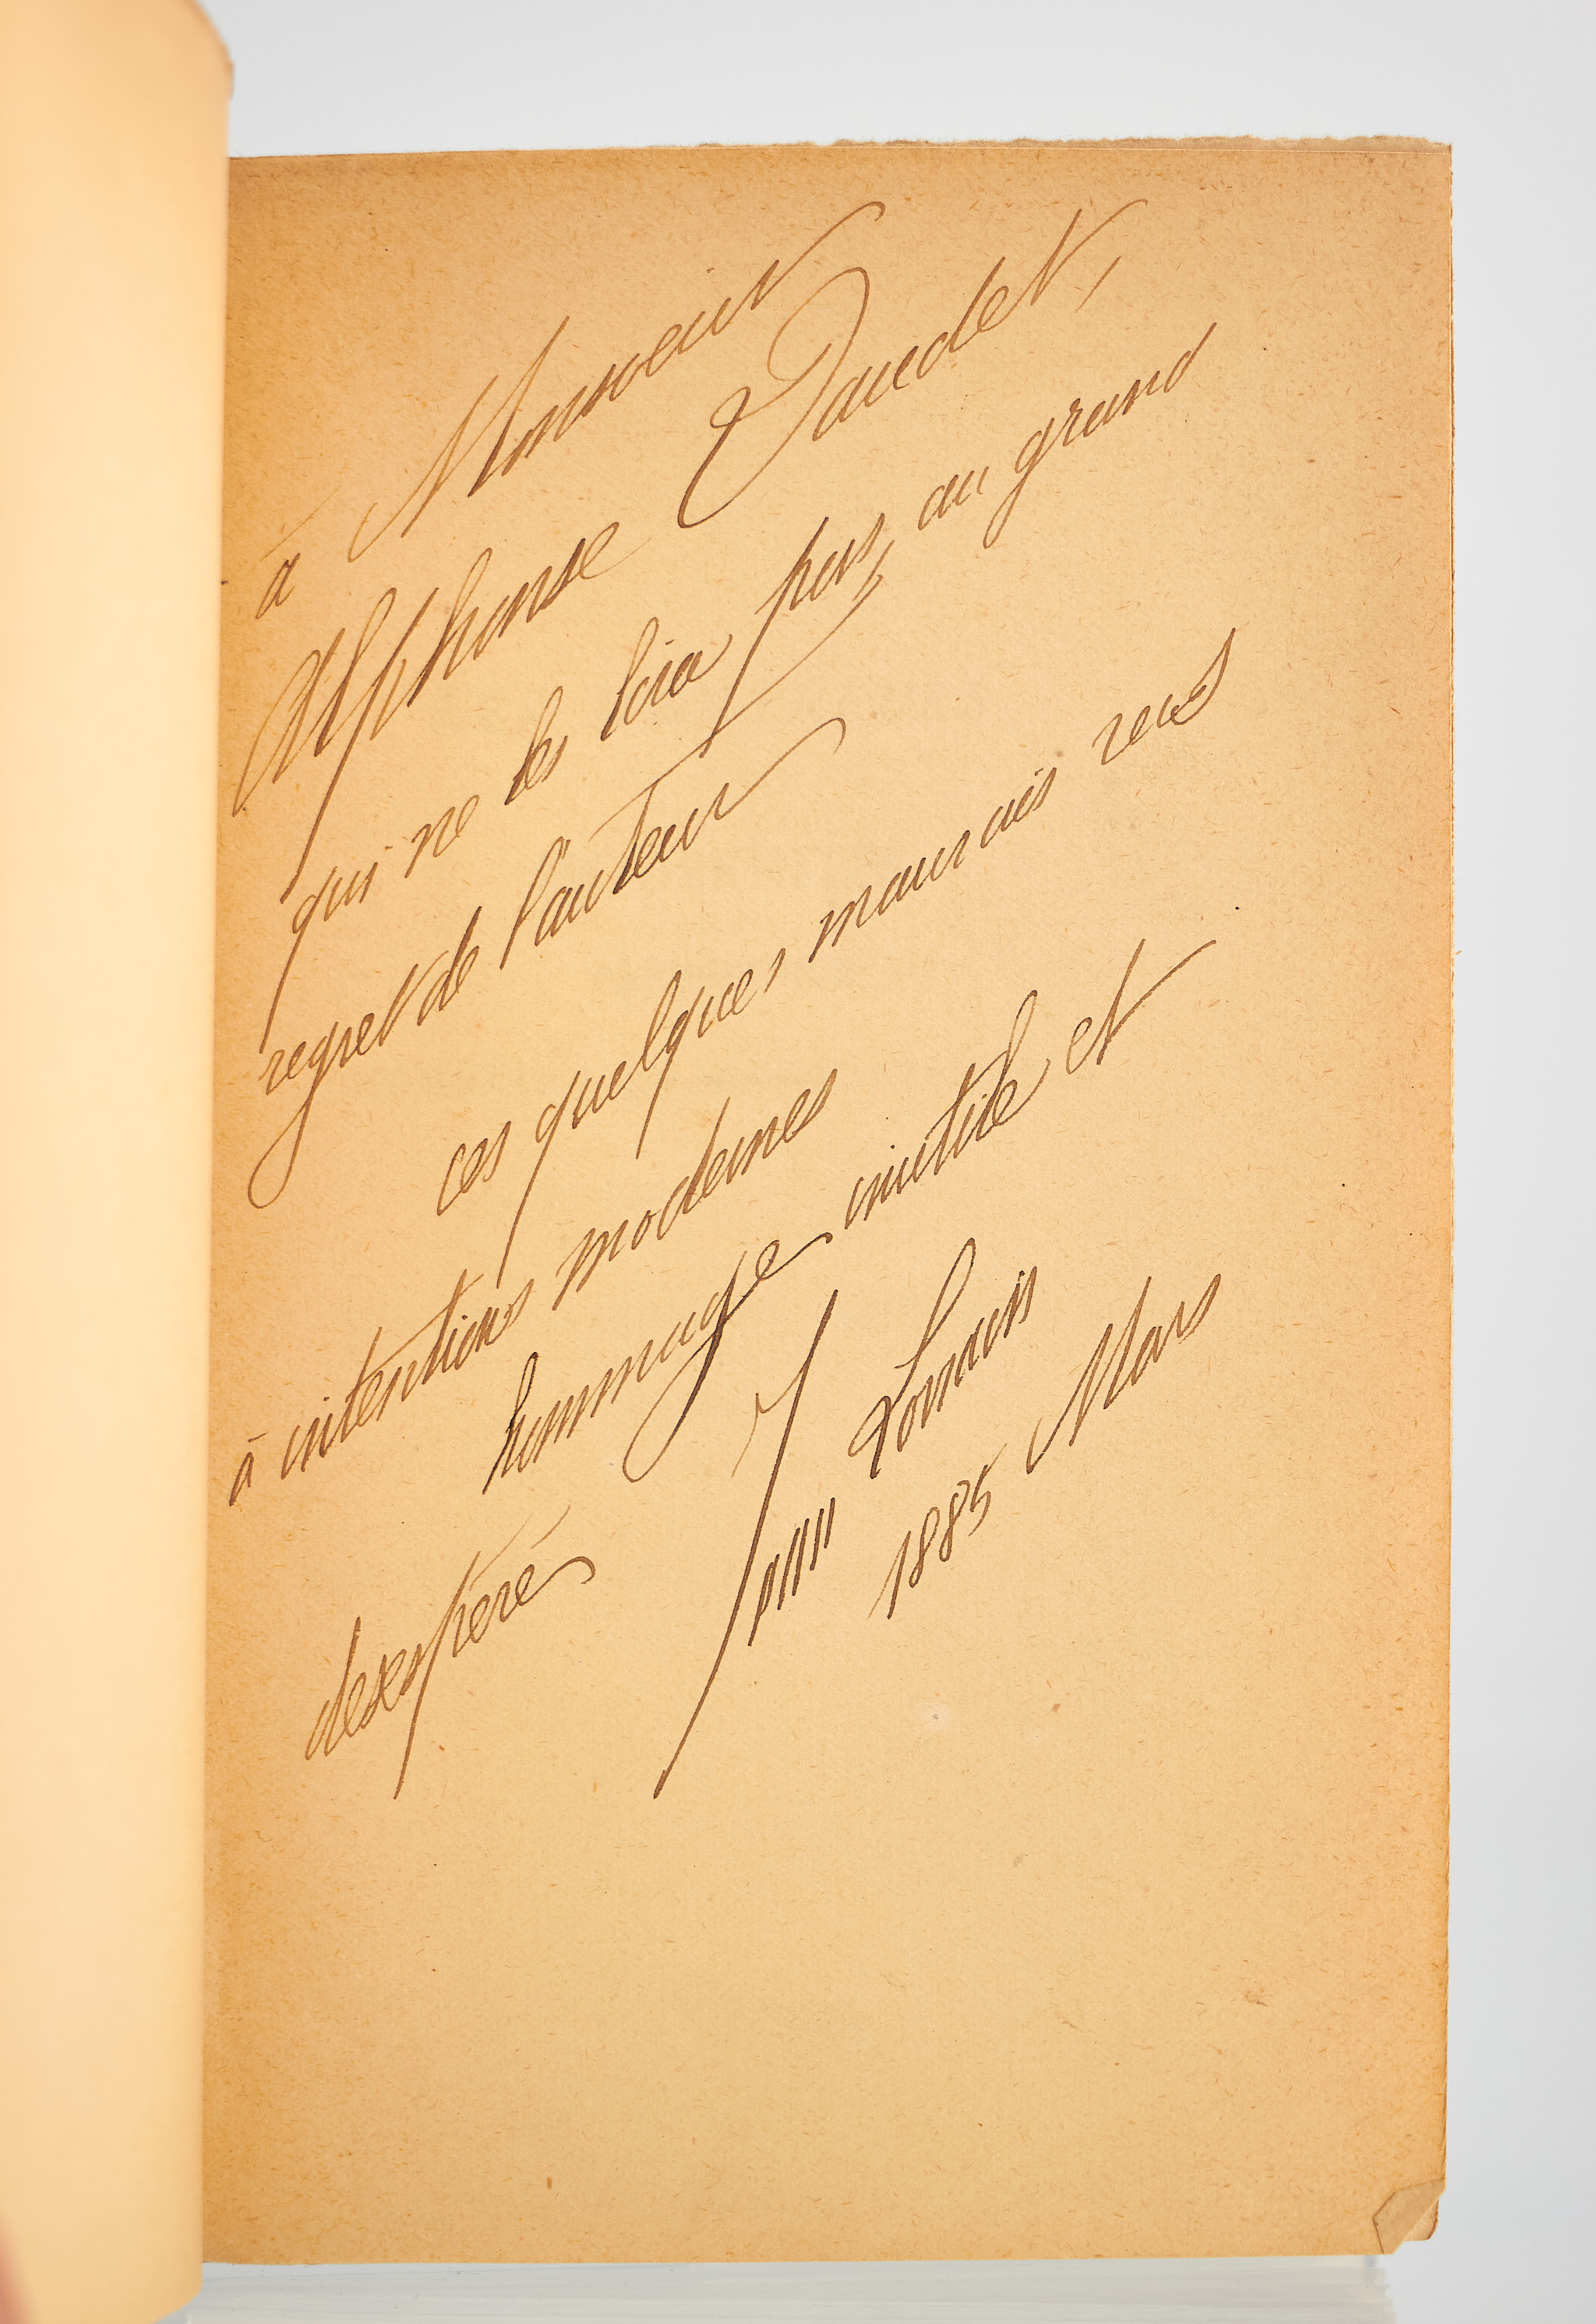 à Monsieur
Alphonse Daudet,
qui ne les lira pas, au grand
regret de l'auteur
ces quelques mauvais vers
à intentions modernes
hommage inutile et
desespéré
Jean Lorrain
1885 Mars